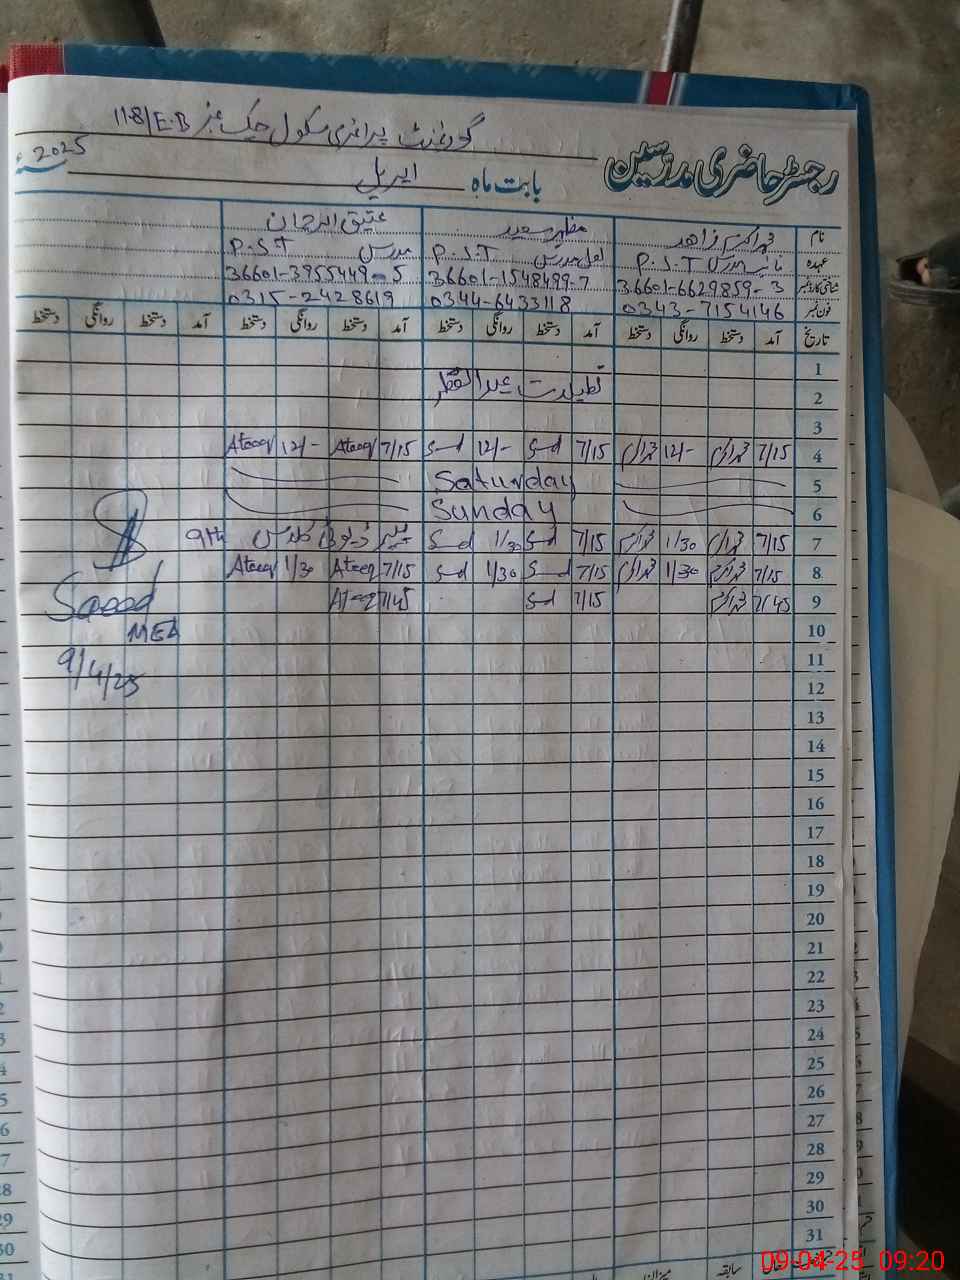 گورنمنٹ پرائمری سکول چک نمبر 118/E.B
رجسٹر حاضری مدرسین
بابت ماہ اپریل 2025
نام محمد اکرم زاهد مظہر سعید عتیق الرحمان
عہدہ نائب مدرس P.S.T مدرس P.S.T مدرس P.S.T
شناختی کارڈ نمبر 36601-6629859-3 36601-1548499-7 36601-3955449-5
فون نمبر 0343-7154146 0344-6433118 0315-2428619
تاریخ آمد دستخط روانگی دستخط آمد دستخط روانگی دستخط آمد دستخط روانگی دستخط آمد دستخط روانگی دستخط
1
2 تعطیلات عید الفطر
3
4 7/15 12/- 7/15 12/- 7/15 Ateeq 12/- Ateeq
5 Saturday
6 Sunday
7 7/15 1/30 7/15 1/30 9th
8 7/15 1/30 7/15 1/30 7/15 Ateeq 1/30 Ateeq
9 7/45 7/15 7/45 Ateeq
Saeed
MEA
9/4/25
10
11
12
13
14
15
16
17
18
19
20
21
22
23
24
25
26
27
28
29
30
31
سابقہ میزان
09-04-25 09:20